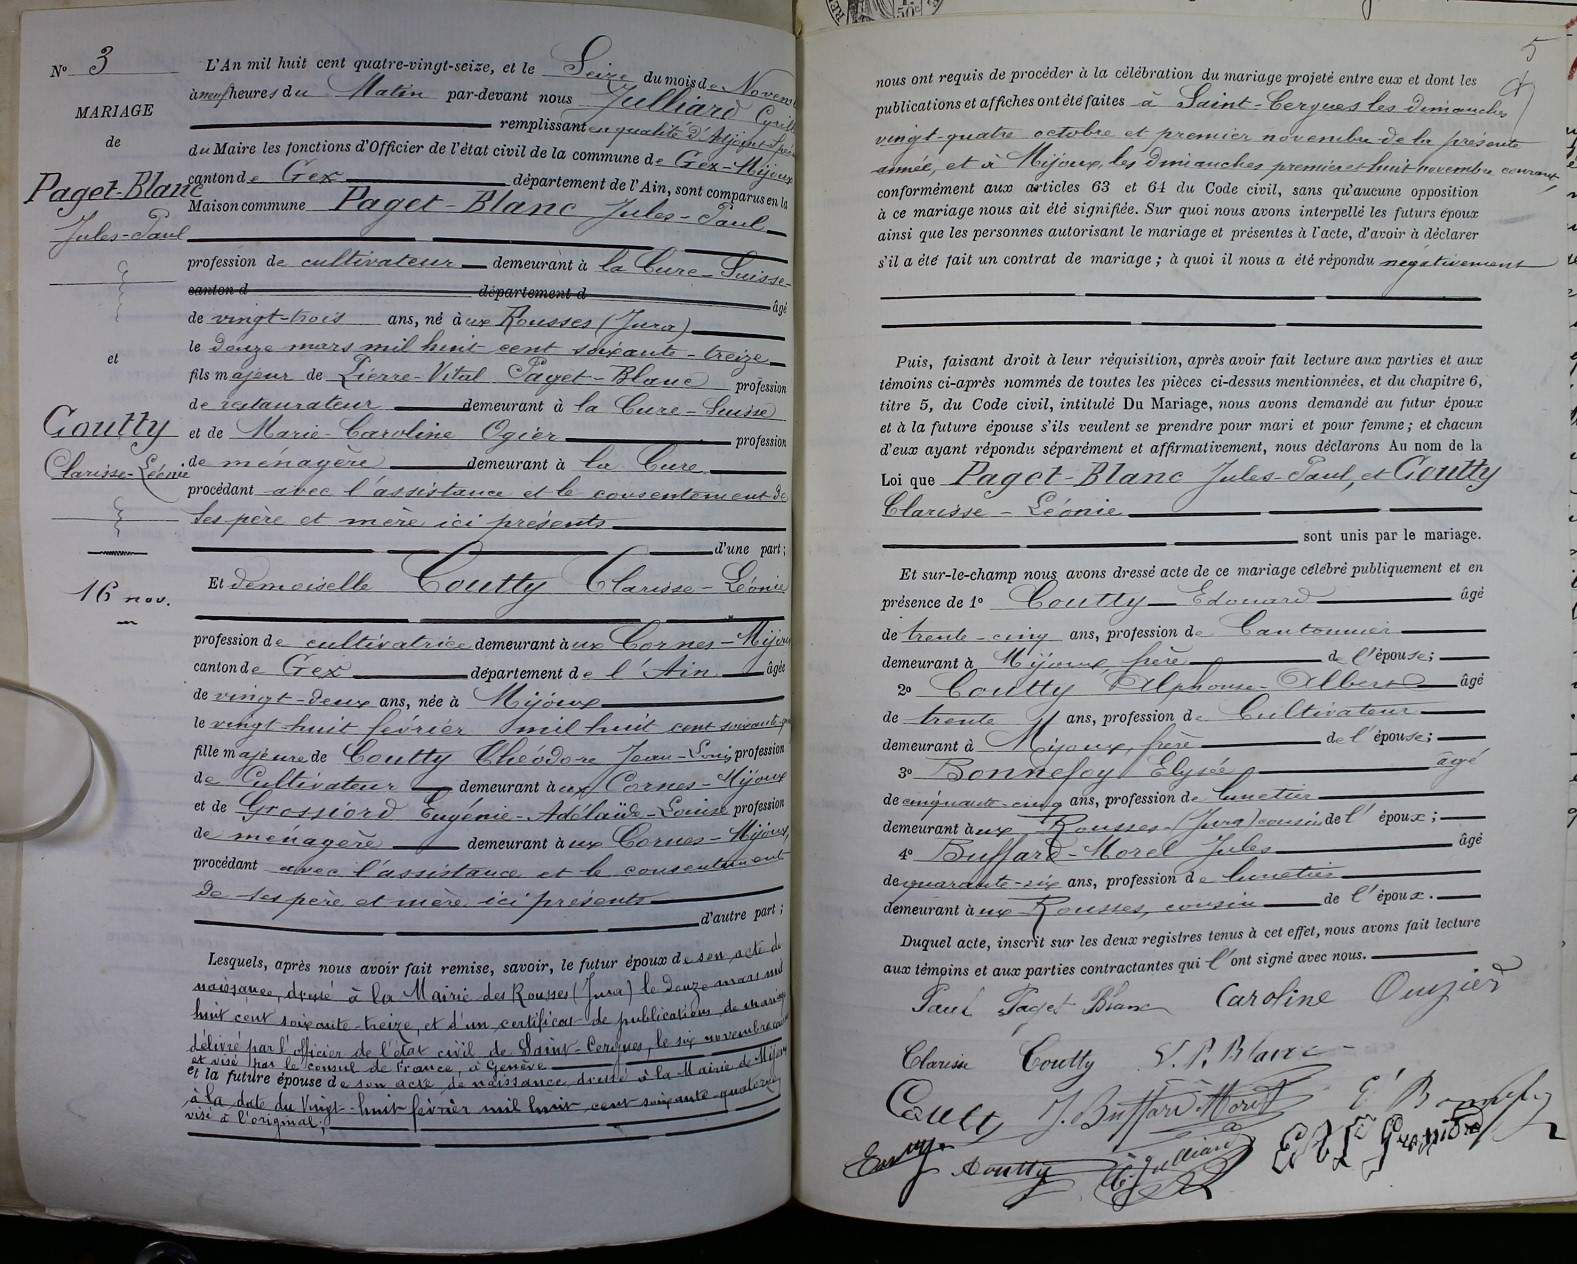 N° 3
MARIAGE
de
Paget-Blanc
Jules-Paul
et
Goutty
Clarisse-Léonie
16 nov.
L'An mil huit cent quatre-vingt-seize, et le Seize du mois de Novem
à neuf heures du Matin par-devant nous Julliard Cyrill
remplissant en qualité d'Adjoint Spé
du Maire les fonctions d'Officier de l'état civil de la commune de Gex-Mijoux
canton de Gex département de l'Ain, sont comparus en la
Maison commune Paget-Blanc Jules-Paul
profession de cultivateur demeurant à la Cure-Suisse-
canton d département d âgé
de vingt-trois ans, né à ux Rousses (Jura)
le douze mars mil huit cent soixante-treize
fils majeur de Pierre-Vital Paget-Blanc profession
de restaurateur demeurant à la Cure-Suisse
et de Marie-Caroline Ogier profession
de ménagère demeurant à la Cure
procédant avec l'assistance et le consentement de
ses père et mère ici présents
d'une part;
Et demoiselle Goutty Clarisse-Léonie
profession de cultivatrice demeurant à ux Cornes-Mijou
canton de Gex département de l'Ain âgée
de vingt-deux ans, née à Mijoux
le vingt huit février mil huit cent soixante-q
fille majeure de Goutty Théodore Jean-Louis profession
de Cultivateur demeurant à ux Cornes-Mijoux
et de Grossiord Eugénie-Adélaïde-Louise profession
de ménagère demeurant à ux Cornes-Mijoux,
procédant avec l'assistance et le consentement
de ses père et mère ici présents
d'autre part;
Lesquels, après nous avoir fait remise, savoir, le futur époux de son acte de
naissance, dressé à la Mairie des Rousses (Jura) le douze mars mil
huit cent soixante-treize, et d'un certificat de publications de mariage
délivré par l'officier de l'état civil de Saint-Cergues, le six novembre
et visé par le consul de France, à Genève
et la future épouse de son acte de naissance dressé à la Mairie de Mijoux
à la date du Vingt-huit février mil huit cent soixante-quatorze
visé à l'original;
5
nous ont requis de procéder à la célébration du mariage projeté entre eux et dont les
publications et affiches ont été faites à Saint-Cergues les dimanches
vingt-quatre octobre et premier novembre de la présente
année, et à Mijoux, les dimanches premier et huit novembre courant,
conformément aux articles 63 et 64 du Code civil, sans qu'aucune opposition
à ce mariage nous ait été signifiée. Sur quoi nous avons interpellé les futurs époux
ainsi que les personnes autorisant le mariage et présentes à l'acte, d'avoir à déclarer
s'il a été fait un contrat de mariage; à quoi il nous a été répondu négativement
Puis, faisant droit à leur réquisition, après avoir fait lecture aux parties et aux
témoins ci-après nommés de toutes les pièces ci-dessus mentionnées, et du chapitre 6,
titre 5, du Code civil, intitulé Du Mariage, nous avons demandé au futur époux
et à la future épouse s'ils veulent se prendre pour mari et pour femme; et chacun
d'eux ayant répondu séparément et affirmativement, nous déclarons Au nom de la
Loi que Paget-Blanc Jules-Paul, et Goutty
Clarisse-Léonie
sont unis par le mariage.
Et sur-le-champ nous avons dressé acte de ce mariage célébré publiquement et en
présence de 1° Goutty Edouard âgé
de trente-cinq ans, profession de Cantonnier
demeurant à Mijoux, frère de l'épouse;
2° Goutty Alphonse-Albert âgé
de trente ans, profession de Cultivateur
demeurant à Mijoux, frère de l'épouse;
3° Bonnefoy Elysée âgé
de cinquante-cinq ans, profession de lunetier
demeurant à ux Rousses-(Jura) cousin de l'époux;
4° Buffard-Morel Jules âgé
de quarante-six ans, profession de lunetier
demeurant à ux Rousses, cousin de l'époux.
Duquel acte, inscrit sur les deux registres tenus à cet effet, nous avons fait lecture
aux témoins et aux parties contractantes qui l'ont signé avec nous.
Paul Paget Blanc Caroline
Clarisse Goutty V. P. Blanc
Goutty J. Buffard Morel E
Goutty Julliard